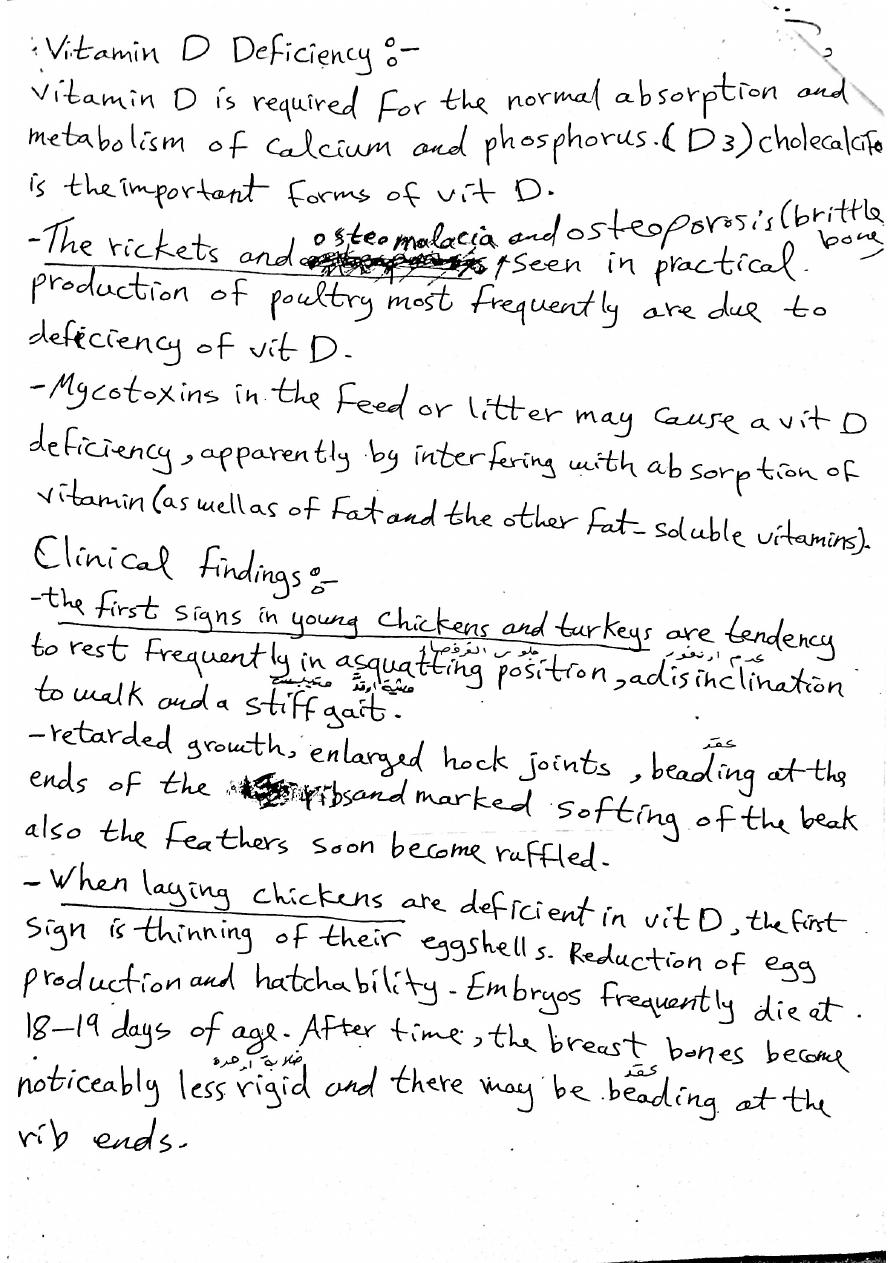 : Vitamin D Deficiency :-
Vitamin D is required for the normal absorption and
metabolism of calcium and phosphorus. (D3) cholecalcife
is the important forms of vit D.
- The rickets and osteomalacia and osteoporosis (brittle bone)
↑ Seen in practical
production of poultry most frequently are due to
deficiency of vit D.
- Mycotoxins in the feed or litter may cause a vit D
deficiency, apparently by interfering with absorption of
vitamin (as well as of fat and the other fat-soluble vitamins).
Clinical findings :-
- the first signs in young chickens and turkeys are tendency
جلوس القرفصاء
to rest frequently in a squatting position, a disinclination
to walk and a stiff gait.
عقد
- retarded growth, enlarged hock joints, beading at the
ends of the ribs and marked softing of the beak
also the feathers soon become ruffled.
- When laying chickens are deficient in vit D, the first
sign is thinning of their eggshells. Reduction of egg
production and hatchability - Embryos frequently die at
18-19 days of age. After time, the breast bones become
صلابة عقد
noticeably less rigid and there may be beading at the
rib ends.